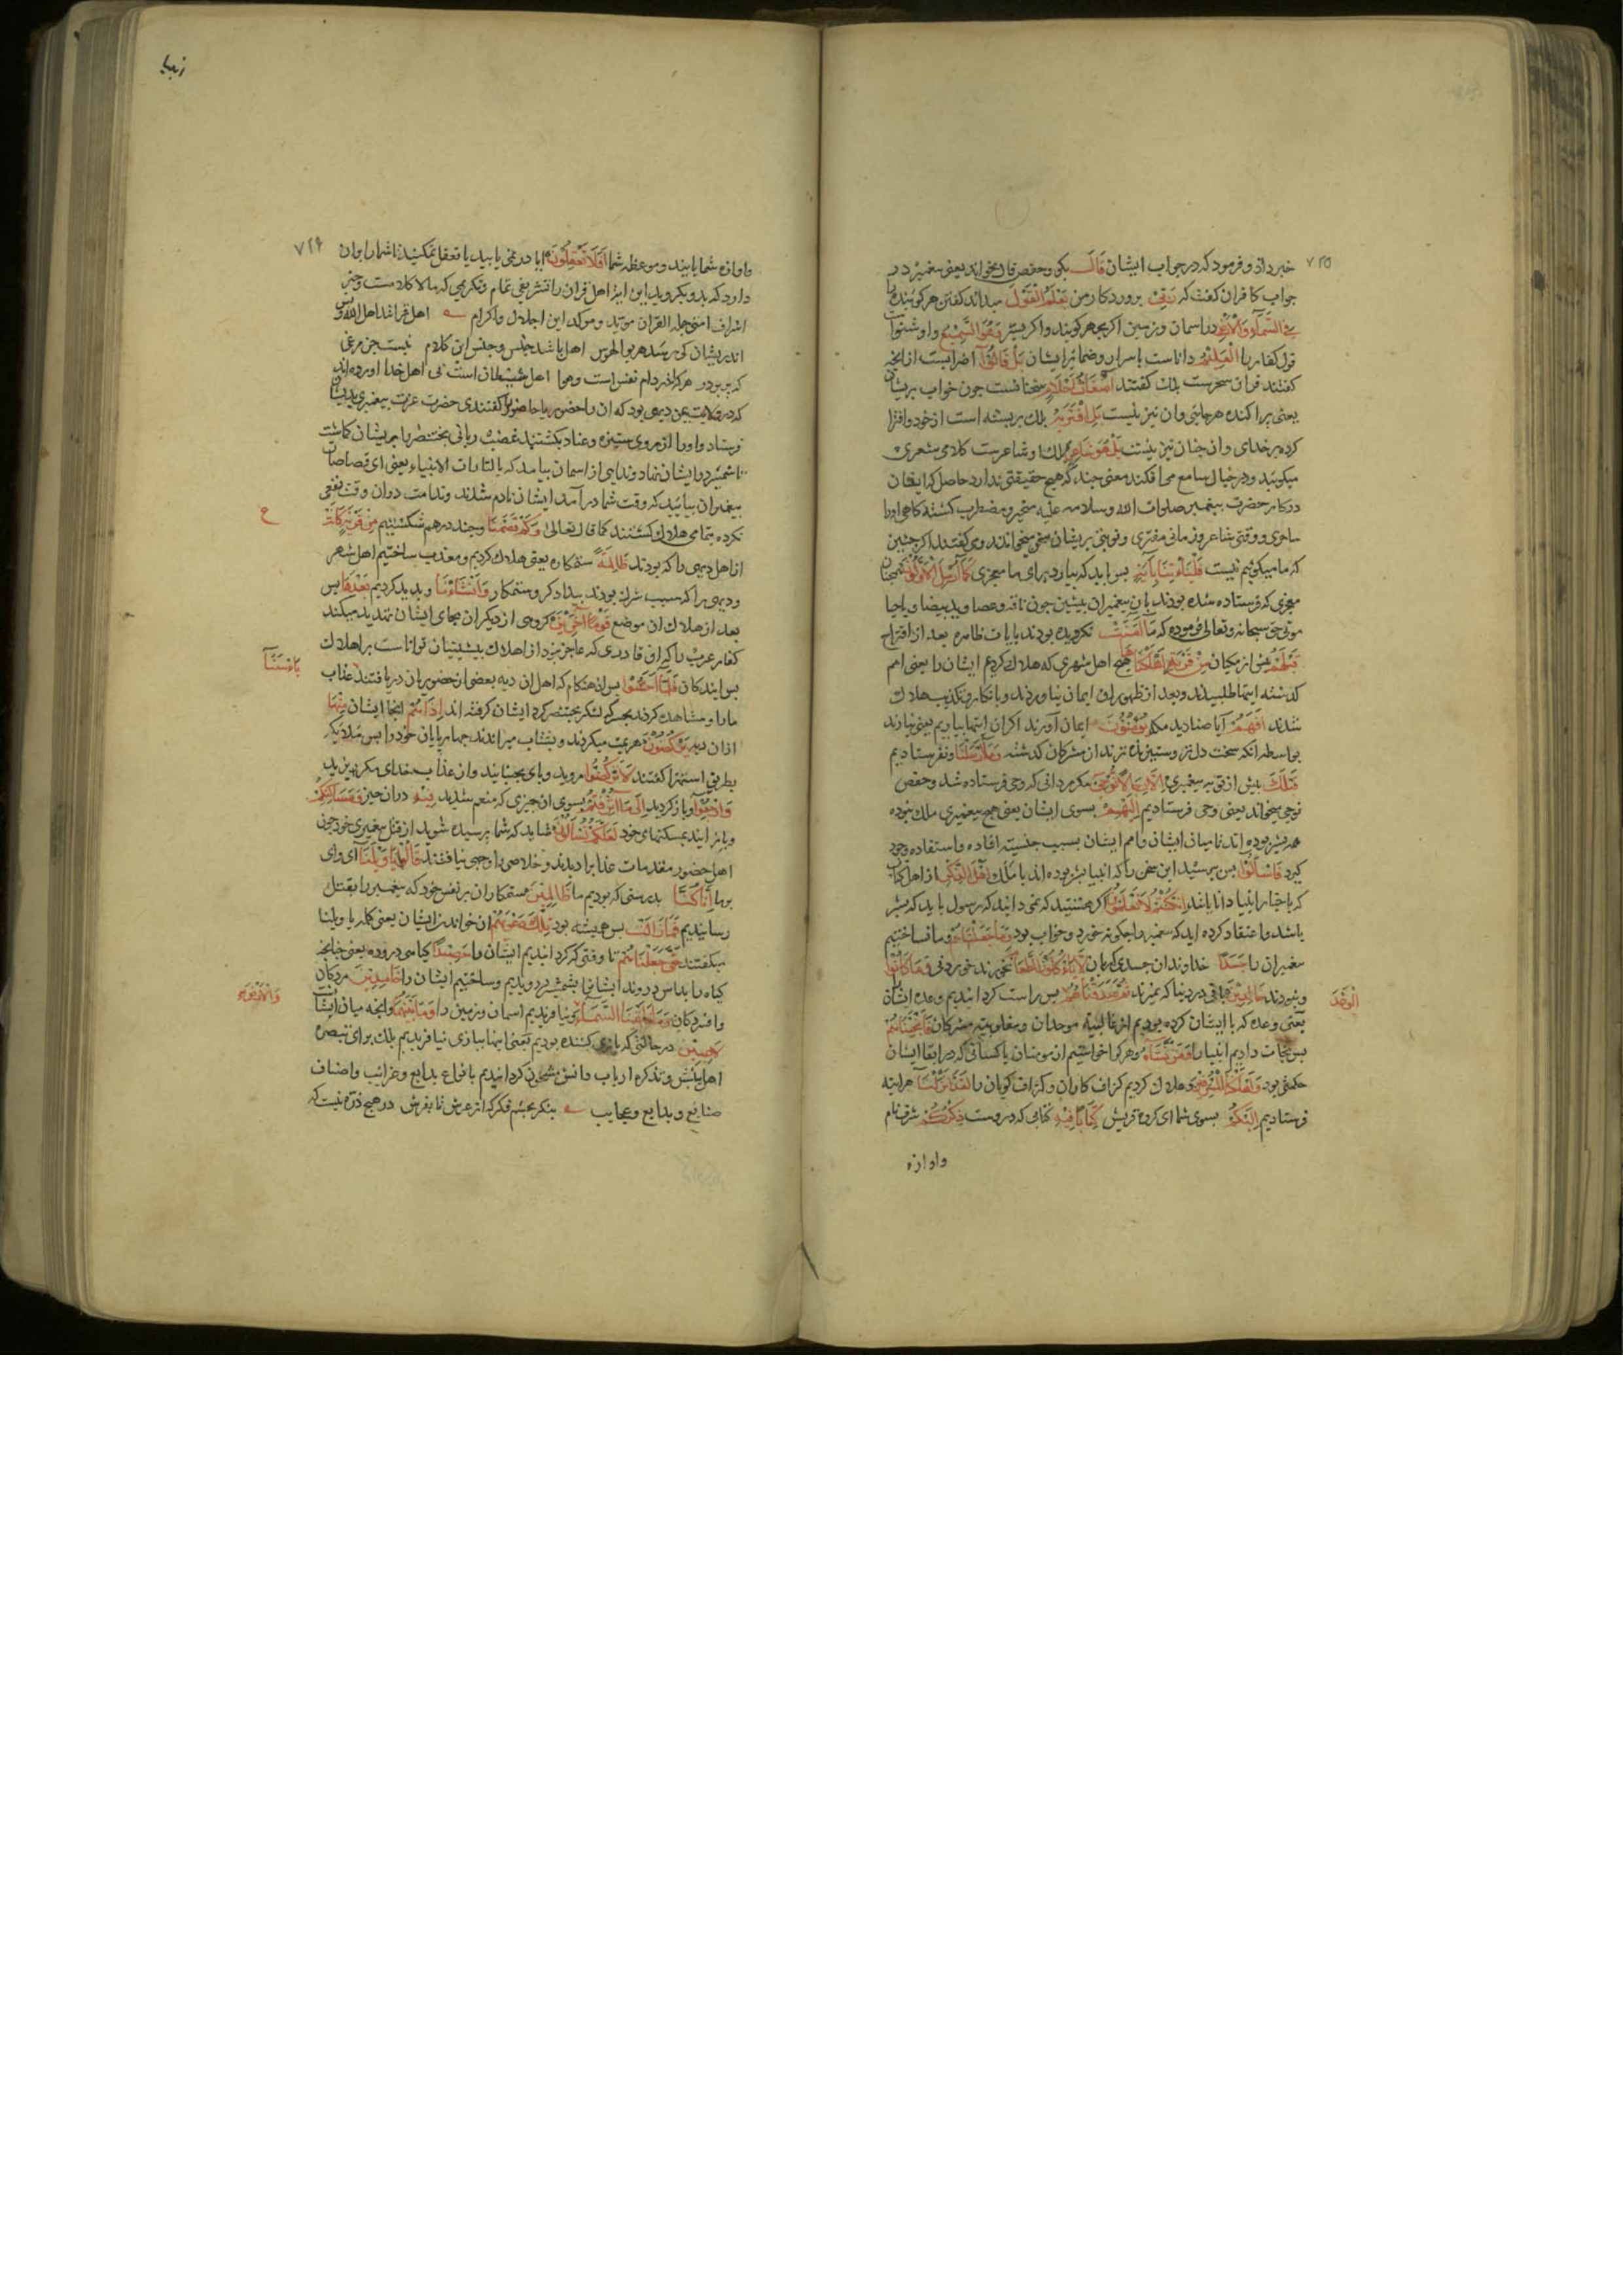 خبر داد و فرمود که در جواب ایشان قَالَ بکو و حفص قال میخواند یعنی پیغمبر در
جواب کافران کفت که رَبِّیْ پروردکار من یَعْلَمُ الْقَوْلَ میداند کفتن هر کوینده را
فِی السَّمَآءِ وَالْاَرْضِ در اسمان و زمین اکر بجهر کویند و اکر بسرّ وَهُوَ السَّمِیْعُ و او شنوا
قول کفار را الْعَلِیْمُ داناست باسرار و ضمائر ایشان بَلْ قَالُوْآ
کفتند قران سحرست بلک کفتند اَضْغَاثُ اَحْلَامٍ سخنانست چون خواب پریشان
یعنی پراکنده هر جایی و ان نیز نیست بَلِ افْتَرٰیهُ بلک بربسته است از خود و افترا
کرده بر خدای و ان چنان نیز نیست بَلْ هُوَ شَاعِرٌ بلک او شاعرست کلامی شعری
میکوید و در خیال سامع می افکند معنی چند که هیچ حقیقتی ندارد حاصل که ایشان
در کار حضرت پیغمبر صلوات الله و سلامه علیه متحیر و مضطرب کشته کاهی او را
ساحر و وقتی شاعر و زمانی مفتری و نوبتی پریشان سخن میخواندند و می کفتند اکر چنین
که ما میکوئیم نیست فَلْیَاْتِنَا بِاٰیَةٍ پس باید که بیارد برای ما معجزی کَمَآ اُرْسِلَ الْاَوَّلُوْنَ همچنان
معجزی که فرستاده شده بودند بان پیغمبران پیشین چون ناقه و عصا و ید بیضا و احیا
موتی حق سبحانه و تعالی فرموده که مَآ اٰمَنَتْ نکرویده بودند بایات ظاهره بعد از اقتراح
قَبْلَهُمْ پیش از مکیان مِنْ قَرْیَةٍ اَهْلَکْنَاهَا هیچ اهل شهری که هلاک کردیم ایشان را یعنی امم
کذشته ایتها طلبیدند و بعد از ظهور ان ایمان نیاوردند و بانکار و تکذیب هلاک
شدند اَفَهُمْ آیا صنادید مکه یُؤْمِنُوْنَ ایمان آورند اکر ان ایتها بیاریم یعنی نیارند
بواسطه انکه سخت دل تر و ستیزنده ترند از مشرکان کذشته وَمَآ اَرْسَلْنَا و نفرستادیم
قَبْلَکَ پیش از تو به پیغمبری اِلَّا رِجَالًا نُوْحِیْ مکر مردانی که وحی فرستاده شد و حفص
نوحی میخواند یعنی وحی فرستادیم اِلَیْهِمْ بسوی ایشان یعنی هیچ پیغمبری ملک نبوده
همه بشر بوده اند تا میان ایشان و امم ایشان بسبب جنسیت افاده و استفاده وجود
کیرد فَاسْئَلُوْا پس بپرسید این سخن را که انبیا بشر بوده اند یا ملک اَهْلَ الذِّکْرِ از اهل کتاب
که باخبار انبیا دانا باشند اِنْ کُنْتُمْ لَا تَعْلَمُوْنَ اکر هستید که نمی دانید که رسول باید که بشر
باشد و اعتقاد کرده اید که پیغمبر را چکونه خورد و خواب بود وَمَا جَعَلْنَاهُمْ و ما نساختیم
پیغمبران را جَسَدًا خداوندان جسدی که بان لَا یَاْکُلُوْنَ الطَّعَامَ نخورند خوردنی وَمَا کَانُوْا
و نبودند خَالِدِیْنَ باقی در دنیا که نمیرند ثُمَّ صَدَقْنَاهُمُ پس راست کردانیدیم وعده ایشان
الْوَعْدَ
یعنی وعده که با ایشان کرده بودیم از غالبیت موحدان و مغلوبیت مشرکان فَاَنْجَیْنَاهُمْ
پس نجات دادیم انبیا را وَمَنْ نَّشَآءُ و هر کرا خواستیم از مومنان یا کسانی که در ابقا ایشان
حکمتی بود وَاَهْلَکْنَا الْمُسْرِفِیْنَ و هلاک کردیم کزاف کاران و کزاف کویان را لَقَدْ اَنْزَلْنَآ هراینه
فرستادیم اِلَیْکُمْ بسوی شما ای کروه قریش کِتَابًا فِیْهِ کتابی که دروست ذِکْرُکُمْ شرف نام
واوازه
۷۲۵
انبیا
۷۲۶
و اوازه شما یا پند و موعظه شما اَفَلَا تَعْقِلُوْنَ ایا در نمی یابید یا تعقل نمیکنید تا شما را بران
دارد که بدو بکروید این ابیات اهل قران را تشریفی تمام و تکریمی که مالاکلامست و خبر
اشراف امتی حملة القران موید و موکد این اجلال و اکرام اهل قرانند اهل الله و بس
اندریشان کی رسد هر بوالهوس اهل باشد جنس و جنس این کلام نیست جز مرغی
که بپرد ز دام هر کرا در دام نفس است و هوا اهل شیطان است نی اهل خدا اورده اند
که در ولایت یمن دیهی بود که ان را حضور یا حاضورا کفتندی حضرت عزت پیغمبری بدیشان
فرستاد و او را از روی ستیزه و عناد بکشتند غضب ربانی بختنصر را بریشان کاشت
تا شمشیر در ایشان نهاد و ندایی از اسمان بیامد که یا لثارات الانبیاء یعنی ای قصاصان
پیغمبران بیائید که وقت شما درآمد ایشان نادم شدند و ندامت دران وقت نفعی
نکرده بتمامی هلاک کشتند کما قال تعالی وَکَمْ قَصَمْنَا و چند درهم شکستیم مِنْ قَرْیَةٍ کَانَتْ
ع
از اهل دیهی را که بودند ظَالِمَةً ستمکاره یعنی هلاک کردیم و معذب ساختیم اهل شهر
و دیهی را که بسبب شرک بودند بیدادکر و ستمکار وَاَنْشَاْنَا و پدید کردیم بَعْدَهَا پس
بعد از هلاک ان موضع قَوْمًا اٰخَرِیْنَ کروهی از دیکران بجای ایشان تهدید میکند
کفار عرب را که ان قادری که عاجز نبود از اهلاک پیشینیان تواناست بر اهلاک
پس ایندکان فَلَمَّآ اَحَسُّوْا پس ان هنکام که اهل ان دیه بعضی از حضوریان دریافتند عذاب
بَاْسَنَآ
ما را و مشاهده کردند بحس که لشکر بختنصر کرد ایشان کرفته اند اِذَا هُمْ انجا ایشان مِّنْهَا
ازان دیه یَرْکُضُوْنَ هزیمت میکردند و بشتاب میراندند چهارپایان خود را پس ملائکه
بطریق استهزا کفتند لَا تَرْکُضُوْا مروید و پای مجنبانید وان عذاب خدای مکریزید
وَارْجِعُوْٓا و بازکردید اِلٰی مَآ اُتْرِفْتُمْ بسوی ان چیزی که منعم شدید فِیْهِ دران چیز وَمَسَاکِنِکُمْ
و باز ایید بمسکنهای خود لَعَلَّکُمْ تُسْئَلُوْنَ شاید که شما پرسیده شوید از قتل پیغمبری خود چون
اهل حضور مقدمات عذاب را دیدند و خلاصی را وجهی نیافتند قَالُوْا یَا وَیْلَنَآ ای وای
بر ما اِنَّا کُنَّا بدرستی که بودیم ما ظَالِمِیْنَ ستمکاران بر نفس خود که پیغمبر را بقتل
رسانیدیم فَمَا زَالَتْ پس همیشه بود تِلْکَ دَعْوٰیهُمْ ان خواندن ایشان یعنی کلمه یا ویلنا
میکفتند حَتّٰی جَعَلْنَاهُمْ تا وقتی که کردانیدیم ایشان را حَصِیْدًا کیاهی دروده یعنی چنانچه
کیاه را بداس دروند ایشان را بشمشیر درویدیم و ساختیم ایشان را خَامِدِیْنَ مردکان
و افسردکان وَمَا خَلَقْنَا السَّمَآءَ و نیافریدیم اسمان و زمین را وَمَا بَیْنَهُمَا و انچه میان ایشانست
وَالْاَرْضَ
لٰعِبِیْنَ در حالتی که بازی کننده بودیم یعنی اینها ببازی نیافریدیم بلک برای تبصره
اهل بینش و تذکره ارباب دانش مشحون کردانیدیم بانواع بدایع و غرائب و اصناف
صنایع و بدایع و عجایب بنکر بچشم فکر که از عرش تا بفرش در هیچ ذره نیست که